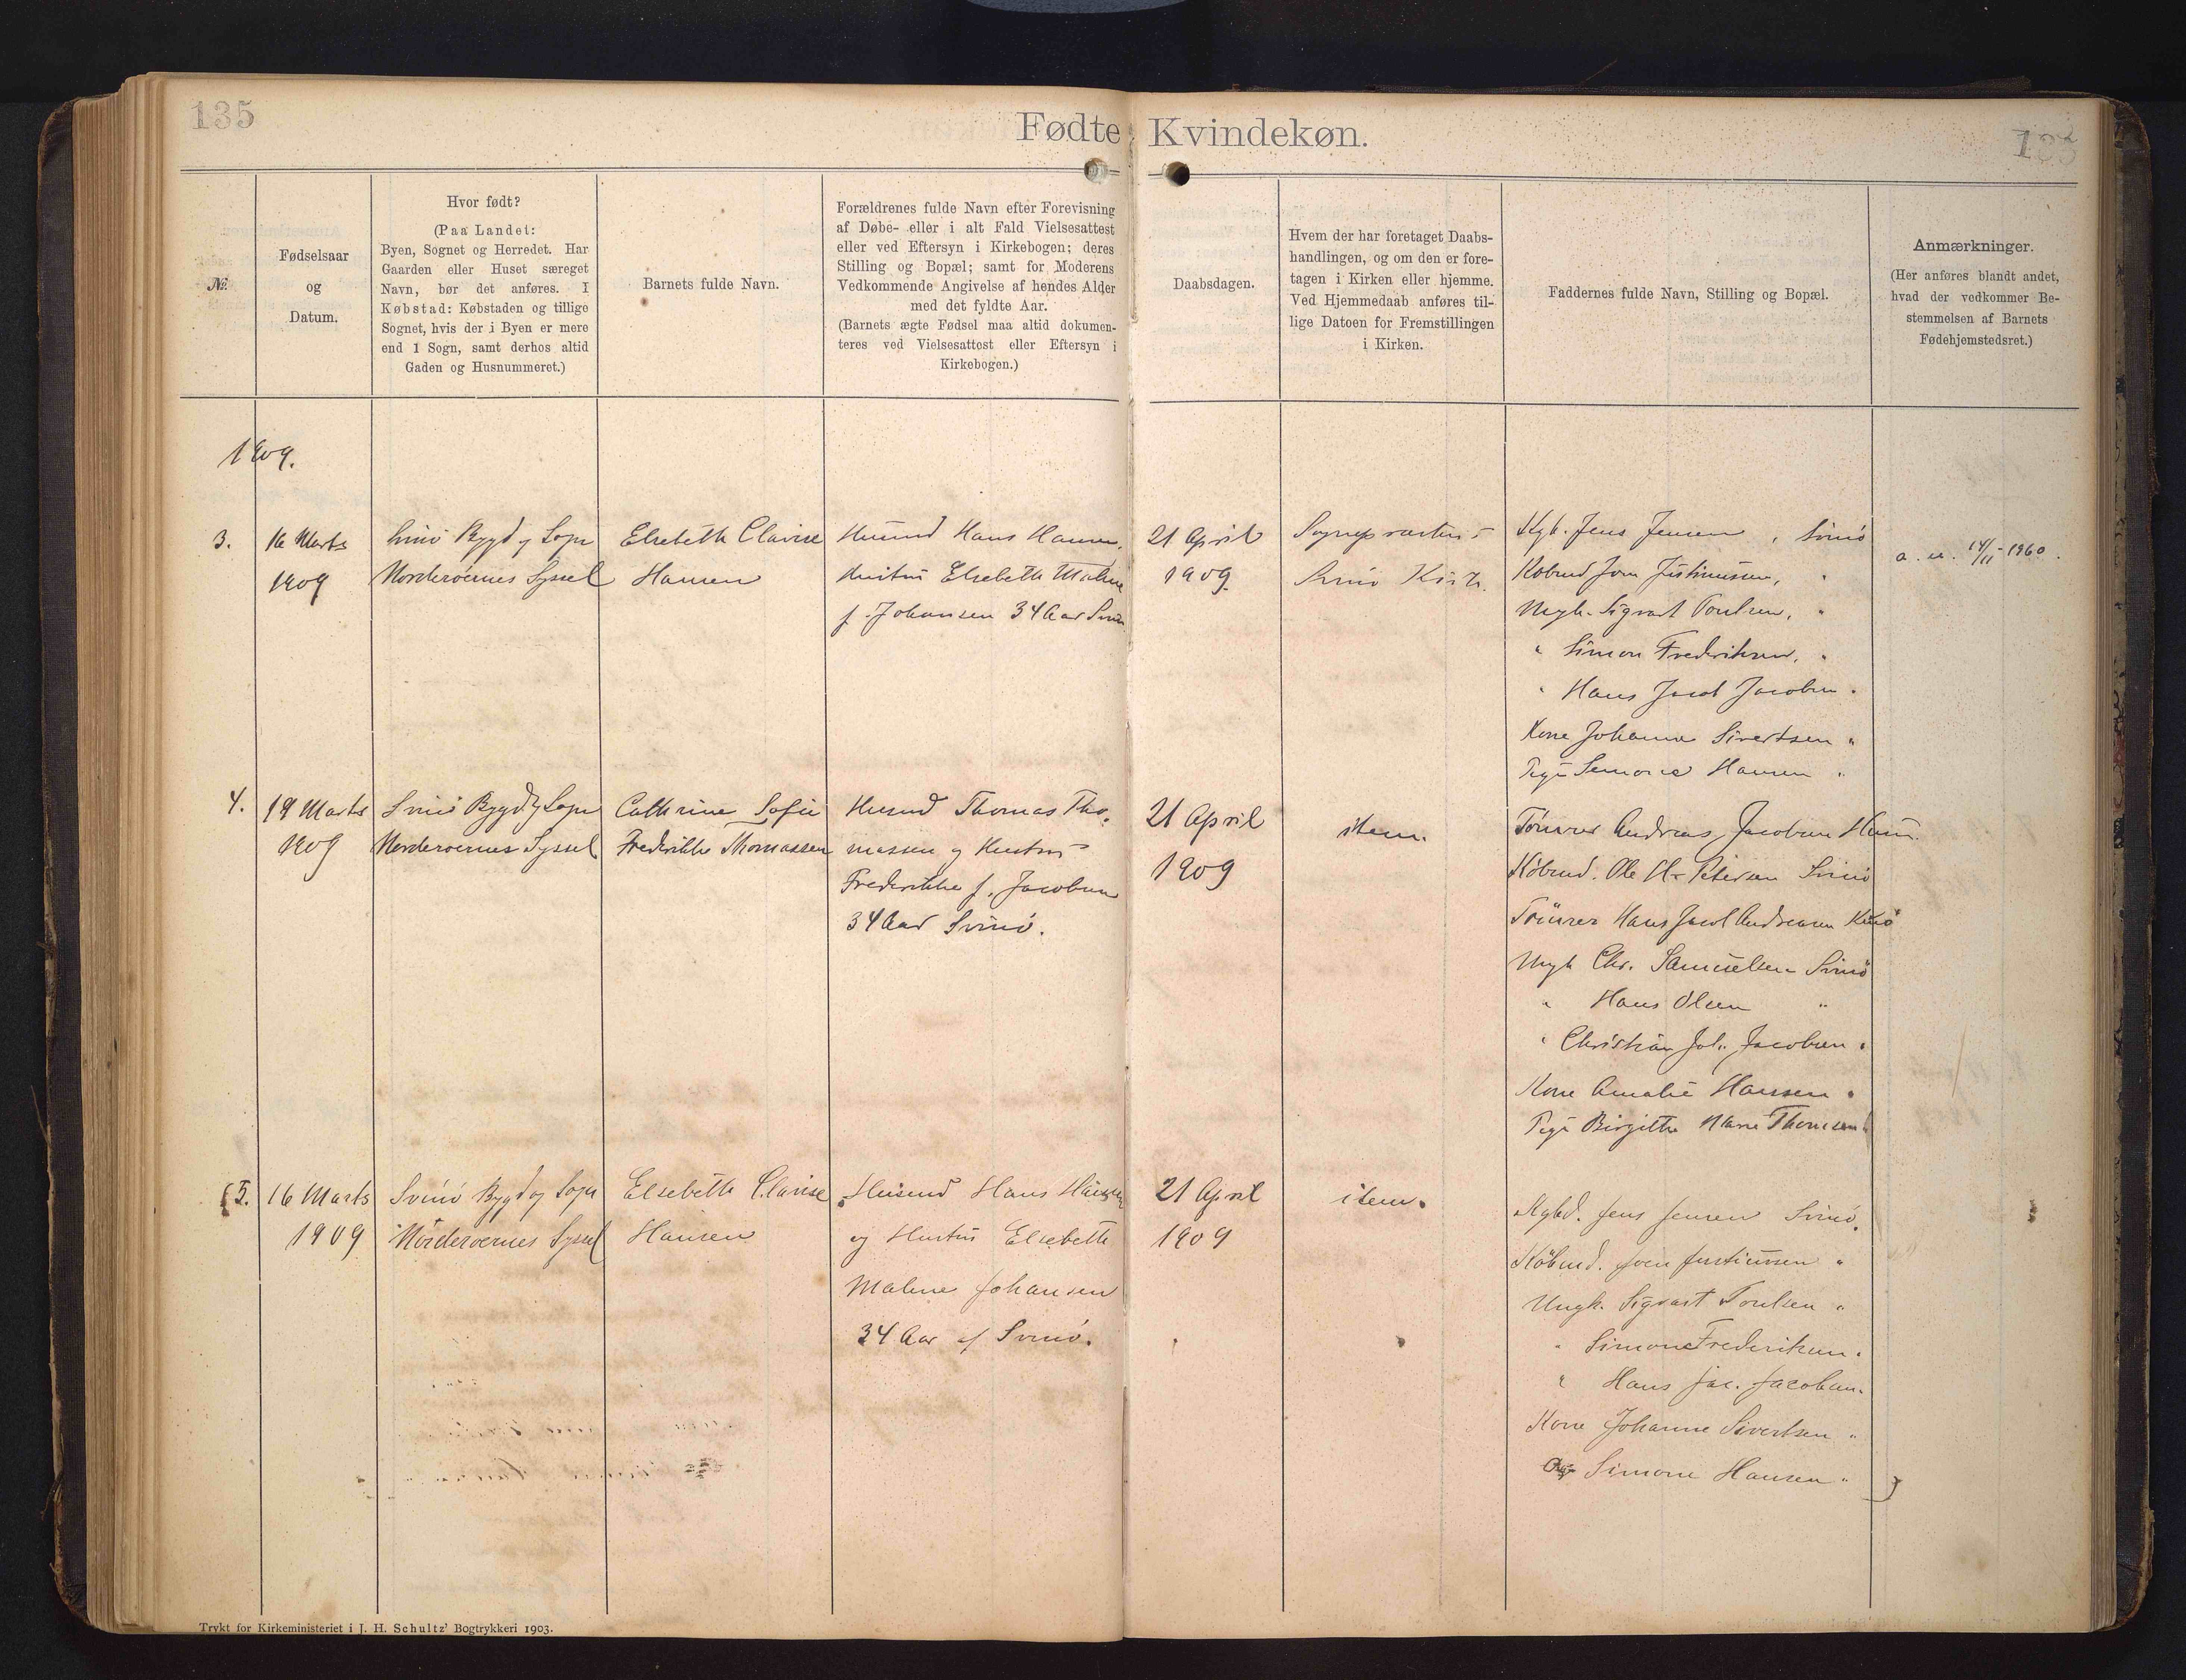 135
Fødte Kvindekøn.
135
№.
Fødselsaar
og
Datum.
Hvor født?
(Paa Landet:
Byen, Sognet og Herredet. Har
Gaarden eller Huset særeget
Navn, bør det anføres. I
Købstad: Købstaden og tillige
Sognet, hvis der i Byen er mere
end 1 Sogn, samt derhos altid
Gaden og Husnummeret.)
Barnets fulde Navn.
Forældrenes fulde Navn efter Forevisning
af Døbe- eller i alt Fald Vielsesattest
eller ved Eftersyn i Kirkebogen; deres
Stilling og Bopæl; samt for Moderens
Vedkommende Angivelse af hendes Alder
med det fyldte Aar.
(Barnets ægte Fødsel maa altid dokumen-
teres ved Vielsesattest eller Eftersyn i
Kirkebogen.)
Daabsdagen.
Hvem der har foretaget Daabs-
handlingen, og om den er fore-
tagen i Kirken eller hjemme.
Ved Hjemmedaab anføres til-
lige Datoen for Fremstillingen
i Kirken.
Faddernes fulde Navn, Stilling og Bopæl.
Anmærkninger.
(Her anføres blandt andet,
hvad der vedkommer Be-
stemmelsen af Barnets
Fødehjemstedsret.)
1909.
3.
16 Marts
1909
Svinö Bygd og Sogn
Norderöernes Syssel
Elsebeth Clavise
Hansen
Husmd Hans Hansen,
Hustru Elsebeth Malene
f. Johansen 34 Aar Svinö
21 April
1909.
Sognepræsten i
Svinö Kirk.
Kgb. Jens Jensen, Svinö
Købmd Joen Justinussen, "
Ungk. Sigvart Poulsen, "
" Simon Frederiksen, "
" Hans Jacob Jacobsen "
Kone Johanne Sivertsen "
Pige Simone Hansen "
a. u. 14/11-1960.
4.
19 Marts
1909
Svinö Bygd og Sogn
Norderoernes Syssel
Cathrine Sofie
Frederikke Thomassen
Husmd Thomas Tho-
massen og Hustru
Frederikke f. Jacobsen
34 Aar Svinö.
21 April
1909
item.
Tömrer Andreas Jacobsen
Købmd. Ole H. Petersen Svinö
Tömrer Hans Jacob Andreasen
Ungk Chr. Samuelsen Svinö
" Hans Olsen "
" Christian Joh. Jacobsen "
Kone Amalie Hansen "
Pige Birgitte Marie Thomsen "
(5.
16 Marts
1909
Svinö Bygd og Sogn
Norderoernes Syssel
Elsebeth Clavise
Hansen
Husmd Hans Hansen
og Hustru Elsebeth
Malene Johansen
34 Aar af Svinö.
21 April
1909
item.
Kgbd. Jens Jensen Svinö.
Köbmd. Joen Justinussen "
Ungk. Sigvart Poulsen "
" Simon Frederiksen "
" Hans Jac. Jacobsen "
Kone Johanne Sivertsen "
Simone Hansen " )
Trykt for Kirkeministeriet i J. H. Schultz' Bogtrykkeri 1903.